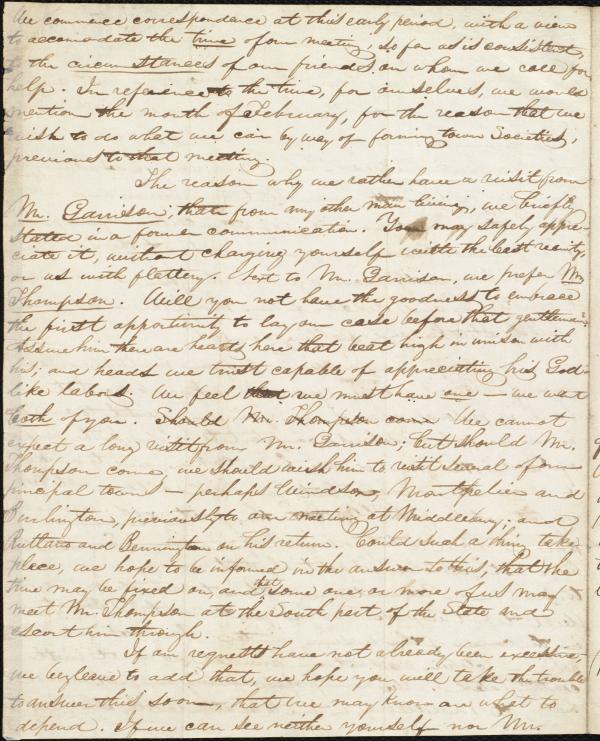 We commence correspondence at this early period, with a view
to accomodate the time of our meeting, so far as is consistent,
to the circumstances of our friends on whom we call for
help. In reference to the time, for ourselves, we would
mention the month of February, for the reason that we
wish to do what we can by way of forming town Societies,
previous to that meeting.
The reason why we rather have a visit from
Mr. Garrison, than from any other man living, we briefly
stated in a former communication. You may safely appre-
ciate it, without charging yourself with the least vanity,
or us with flattery. Next to Mr. Garrison, we prefer Mr
Thompson. Will you not have the goodness to embrace
the first opportunity to lay our case before that gentleman;
Assure him there are hearts here that beat high in unison with
his; and heads we trust capable of appreciating his God-
like labors. We feel that we must have one — we want
both of you. Should Mr. Thompson come We cannot
expect a long visit from Mr. Garrison; but should Mr.
Thompson come, we should wish him to visit several of our
principal towns — perhaps Windsor, Montpelier and
Burlington, previously to our meeting at Middlebury; and
Rutland and Bennington on his return. Could such a thing take
place, we hope to be informed in the answer to this, that the
time may be fixed on, and that some one, or more of us may
meet Mr. Thompson at the South part of the State and
escort him through.
If our requests have not already been excessive,
we beg leave to add that, we hope you will take the trouble
to answer this soon, that we may know on what to
depend. If we can see neither yourself nor Mr.